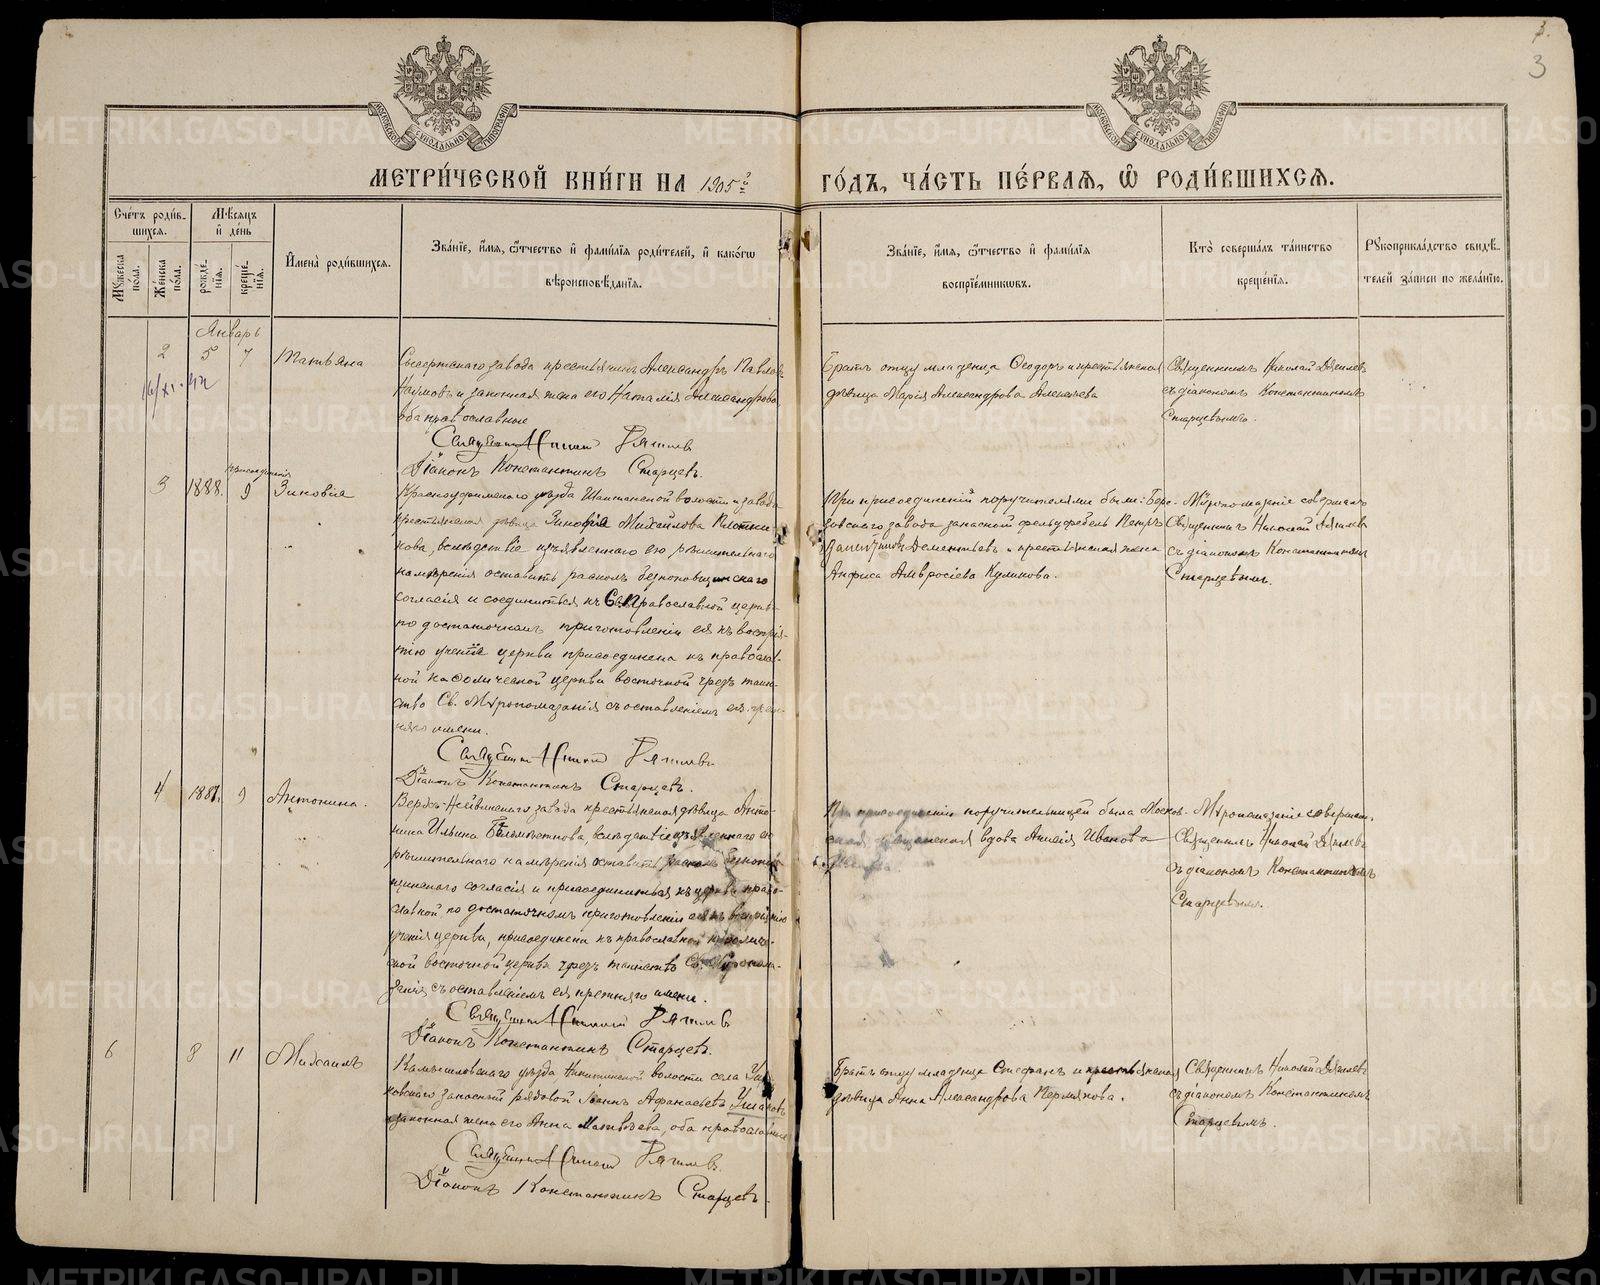 3
МЕТРИ́ЧЕСКОЙ КНИ́ГИ НА 1905 го́дъ, ча́сть пе́рваѧ, ѡ҆ роди́вшихсѧ.
МОСКОВСКОЙ СУНОДАЛЬНОЙ ТИПОГРАФІИ
МОСКОВСКОЙ СУНОДАЛЬНОЙ ТИПОГРАФІИ
Сче́тъ роди́в-
шихсѧ.
Мꙋ́жеска по́ла.
Же́нска по́ла.
Мѣ́сѧцъ
и҆ де́нь
рожде́-
нїѧ.
креще́-
нїѧ.
И҆мена̀ роди́вшихсѧ.
Зва́нїе, и҆́мѧ, ѻ҆́тчество и҆ фами́лїѧ роди́телей, и҆ како́гѡ
вѣроисповѣ́данїѧ.
Зва́нїе, и҆́мѧ, ѻ҆́тчество и҆ фами́лїѧ
воспрїе́мникѡвъ.
Кто̀ соверша́лъ та́инство
креще́нїѧ.
Рꙋкоприкла́дство свидѣ́-
телей за́писи по жела́нїю.
Январь
2 5 7 Татьяна
Сысертскаго завода крестьянинъ Александръ Павловъ
Наумовъ и законная жена его Наталія Александрова
оба православные
Священникъ Николай
Діаконъ Константинъ Старцевъ.
Братъ отцу младенца Ѳеодоръ и крестьянская
дѣвица Марія Александрова
Священникъ Николай
съ діакономъ Константиномъ
Старцевымъ.
3 1888. 9 Зиновія
Красноуфимскаго уѣзда Шайтанской волости и завода
крестьянская дѣвица Зиновія Михайлова Плотни-
кова, вслѣдствіе изъявленнаго ею рѣшительнаго
намѣренія оставить расколъ безпоповщинскаго
согласія и соединиться къ Св. Православной церкви
по достаточномъ приготовленіи ея къ воспрія-
тію ученія церкви присоединена къ православ-
ной каѳолической церкви восточной чрезъ таин-
ство Св. Мѵропомазанія съ оставленіемъ ея преж-
няго имени.
Священникъ Николай
Діаконъ Константинъ Старцевъ.
При присоединеніи поручителями были: Бере-
зовскаго завода запасной фельдфебель Петръ
Дементьевъ и крестьянская жена
Анфиса Амвросіева Куликова.
Мѵропомазаніе совершалъ
Священникъ Николай
съ діакономъ Константиномъ
Старцевымъ.
4 1887. 9 Антонина.
Верхъ-Нейвинскаго завода крестьянская дѣвица Анто-
нина Ильина вслѣдствіе изъявленнаго ею
рѣшительнаго намѣренія оставить расколъ безпопов-
щинскаго согласія и присоединиться къ церкви право-
славной по достаточномъ приготовленіи ея къ воспріятію
ученія церкви, присоединена къ православной каѳоличе-
ской восточной церкви чрезъ таинство Св. Мѵропома-
занія съ оставленіемъ ея прежняго имени.
Священникъ Николай
Діаконъ Константинъ Старцевъ.
При присоединеніи поручительницей была
вдова Иванова
Мѵропомазаніе совершалъ
Священникъ Николай
съ діакономъ Константиномъ
Старцевымъ.
6 8 11 Михаилъ
Камышловскаго уѣзда, Никитинской волости села
запасный рядовой Іоаннъ Афанасьевъ Ушаковъ
законная жена его Анна Матвѣева, оба православные
Священникъ Николай
Діаконъ Константинъ Старцевъ.
Братъ отцу младенца Стефанъ и крестьянская
дѣвица Анна Александрова Пермякова.
Священникъ Николай
съ діакономъ Константиномъ
Старцевымъ.
METRIKI.GASO-URAL.RU